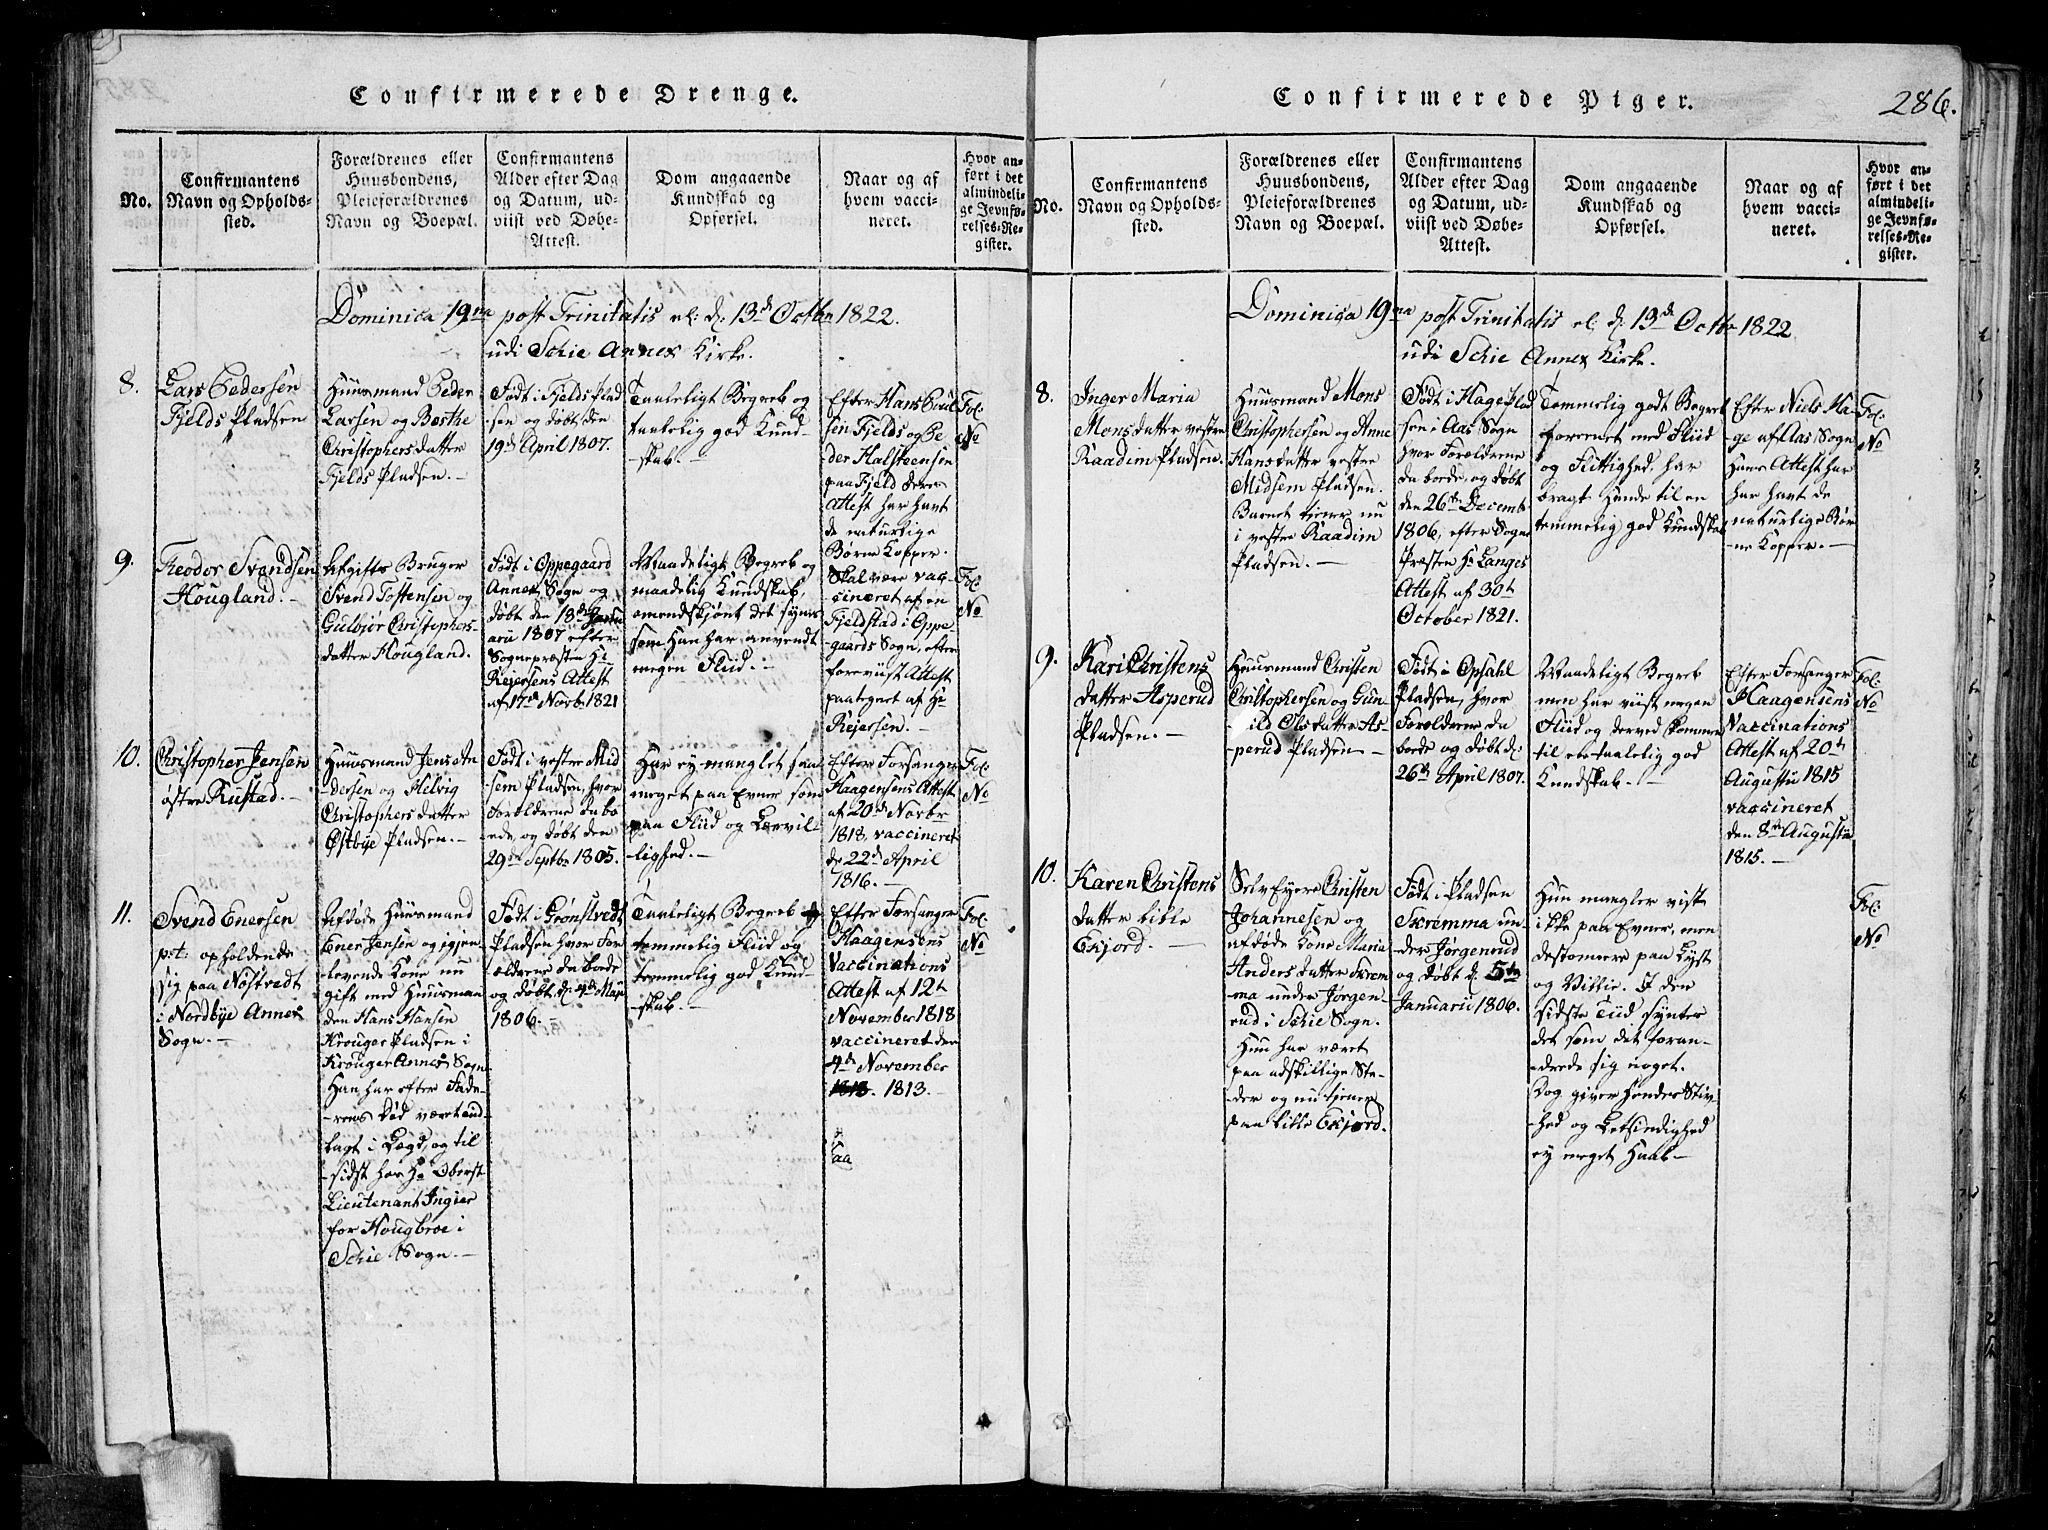 Confirmerede Drenge.
No.
Confirmantens
Navn og Opholds-
sted.
Forældrenes eller
Huusbondens,
Pleieforældrenes
Navn og Boepæl.
Confirmantens
Alder efter Dag
og Datum, ud-
viist ved Døbe-
Attest.
Dom angaaende
Kundskab og
Opførsel.
Naar og af
hvem vacci-
neret.
Hvor an-
ført i det
almindeli-
ge Jevnfø-
relses-Re-
gister.
Dominica 19na post Trinitatis el. d. 13de Octbr 1822.
udi Schie Annex Kirke.
8.
Lars Pedersen
Fjelds Pladsen
Huusmand Peder
Larsen og Berthe
Christophersdatter
Fjelds Pladsen.-
Født i Fjelds Plad
-sen og døbt den
19de April 1807.
Taaleligt Begreb og
taalelig god Kund-
-skab.-
Efter Hans Poul
sen Fjelds og Pe
der Halsteensen
paa Fjeld deres
Attest har havt
de naturlige
Børne Kopper.
Fol.
No
9.
Theodor Svendsen
Hougland.-
Afgifts Bruger
Svend Tostensen og
Gulbjør Christophers-
datter Hougland.
Født i Oppegaard
Annex Sogn og
døbt den 18de Janu
arii 1807 efter
Sognepræsten Hr
Rejersens Attest
af 17de Novb. 1821
Maadeligt Begreb og
maadelig Kundskab,
omendskjønt det synes
som Han har anvendt
megen Fliid.-
Skal være vac-
cineret af en
Fjeldstad i Oppe
gaards Sogn, efter
foreviist Attest
paategnet af Hr
Rejersen.-
Fol.
No
10.
Christopher Jensen
østre Rustad.-
Huusmand Jens An
-dersen og Helvig
Christophersdatter
Østbye Pladsen.-
Født i vestre Mid
sem Pladsen, hvor
Forældrene da bo
ede, og døbt den
29de Septbr 1805.
Har ey manglet saa
meget paa Evner som
paa Fliid og Lærvil
lighed.-
Efter Forsanger
Haagensens Attest
af 20de Novbr
1818, vaccineret
de 22de April
1816.-
Fol.
No
11.
Svend Enersen
p.t. opholdende
sig paa Nøstvedt
i Nordbye Annex
Sogn.-
Afdøde Huusmand
Ener Jensen og igjen
levende Kone nu
gift med Huusman
den Hans Hansen
Krouger Pladsen i
Krouger Annex Sogn
Han har efter Fade-
-rens Død været ud-
lagt i Lægd, og til
-sidst hos Hr Oberst
Lieutenant Ingier
for Hougbroe i
Schie Sogn.-
Født i Grønstvedt
Pladsen hvor For
ældrene da boede
og døbt d. 4de Maji
1806.-
Taaleligt Begreb og
temmelig Fliid og
temmelig god Kund
-skab.-
Efter Forsanger
Haagensens
Vaccinations
Attest af 12te
November 1818
vaccineret den
4de November
1818. 1813.
aa
Fol.
No
Confirmerede Piger.
286.
No.
Confirmantens
Navn og Opholds-
sted.
Forældrenes eller
Huusbondens,
Pleieforældrenes
Navn og Boepæl.
Confirmantens
Alder efter Dag
og Datum, ud-
viist ved Døbe-
Attest.
Dom angaaende
Kundskab og
Opførsel.
Naar og af
hvem vacci-
neret.
Hvor an-
ført i det
almindeli-
ge Jevnfø-
relses-Re-
gister.
Dominica 19na post Trinitatis el. d. 13de Octbr 1822
udi Schie Annex Kirke.
8.
Inger Maria
Monsdatter vestre
Raadim Pladsen.
Huusmand Mons
Christophersen og Anne
Hansdatter vestre
Midsem Pladsen.
Barnet tjener nu
i vestre Raadim
Pladsen.-
Født i Hage Plad
sen i Aas Sogn
hvor Forældrene
da boede, og døbt
den 26de Decemb.
1806, efter Sogne
Præsten Hr Langes
Attest af 30te
October 1821.
Temmelig godt Begreb
foreenet med Fliid
og Flittighed, har
bragt Hende til en
temmelig god Kundskab
Efter Niels Ha-
ge af Aas Sogn
Hans Attest har
har havt de
naturlige Bør
ne Kopper.-
Fol.
No
9.
Kari Christens
datter Asperud
Pladsen.-
Huusmand Christen
Christophersen og Gun-
-ild Olsdatter As-
-perud Pladsen-
Født i Opsahl
Pladsen, hvor
Forældrene da
boede og døbt d.
26de April 1807.
Maadeligt Begreb
men har viist megen
Fliid og derved kommen
til een taalelig god
Kundskab.-
Efter Forsanger
Haagensens
Vaccinations
Attest af 20te
Augustii 1815
vaccineret
den 8de Augustii
1815.-
Fol.
No
10.
Karen Christens
datter lille
Ekjord.-
Selv Eyere Christen
Johannesen og
afdøde Kone Maria
Andersdatter Skrem
ma under Jørgen
rud i Schie Sogn.
Hun har været
paa adskillige Ste-
-der og nu tjener
paa lille Ekjord.
Født i Pladsen
Skremma un-
ders Jørgenrud
og døbt d. 5te
Januarii 1806.
Hun mangler vist
ikke paa Evner, men
destomere paa Lyst
og Villie. I den
sidste Tiid synter
det som det foran-
drede sig noget.
Dog giver Hendes Stiv-
-hed og Letsindighed
ey meget Haab-
Fol.
No